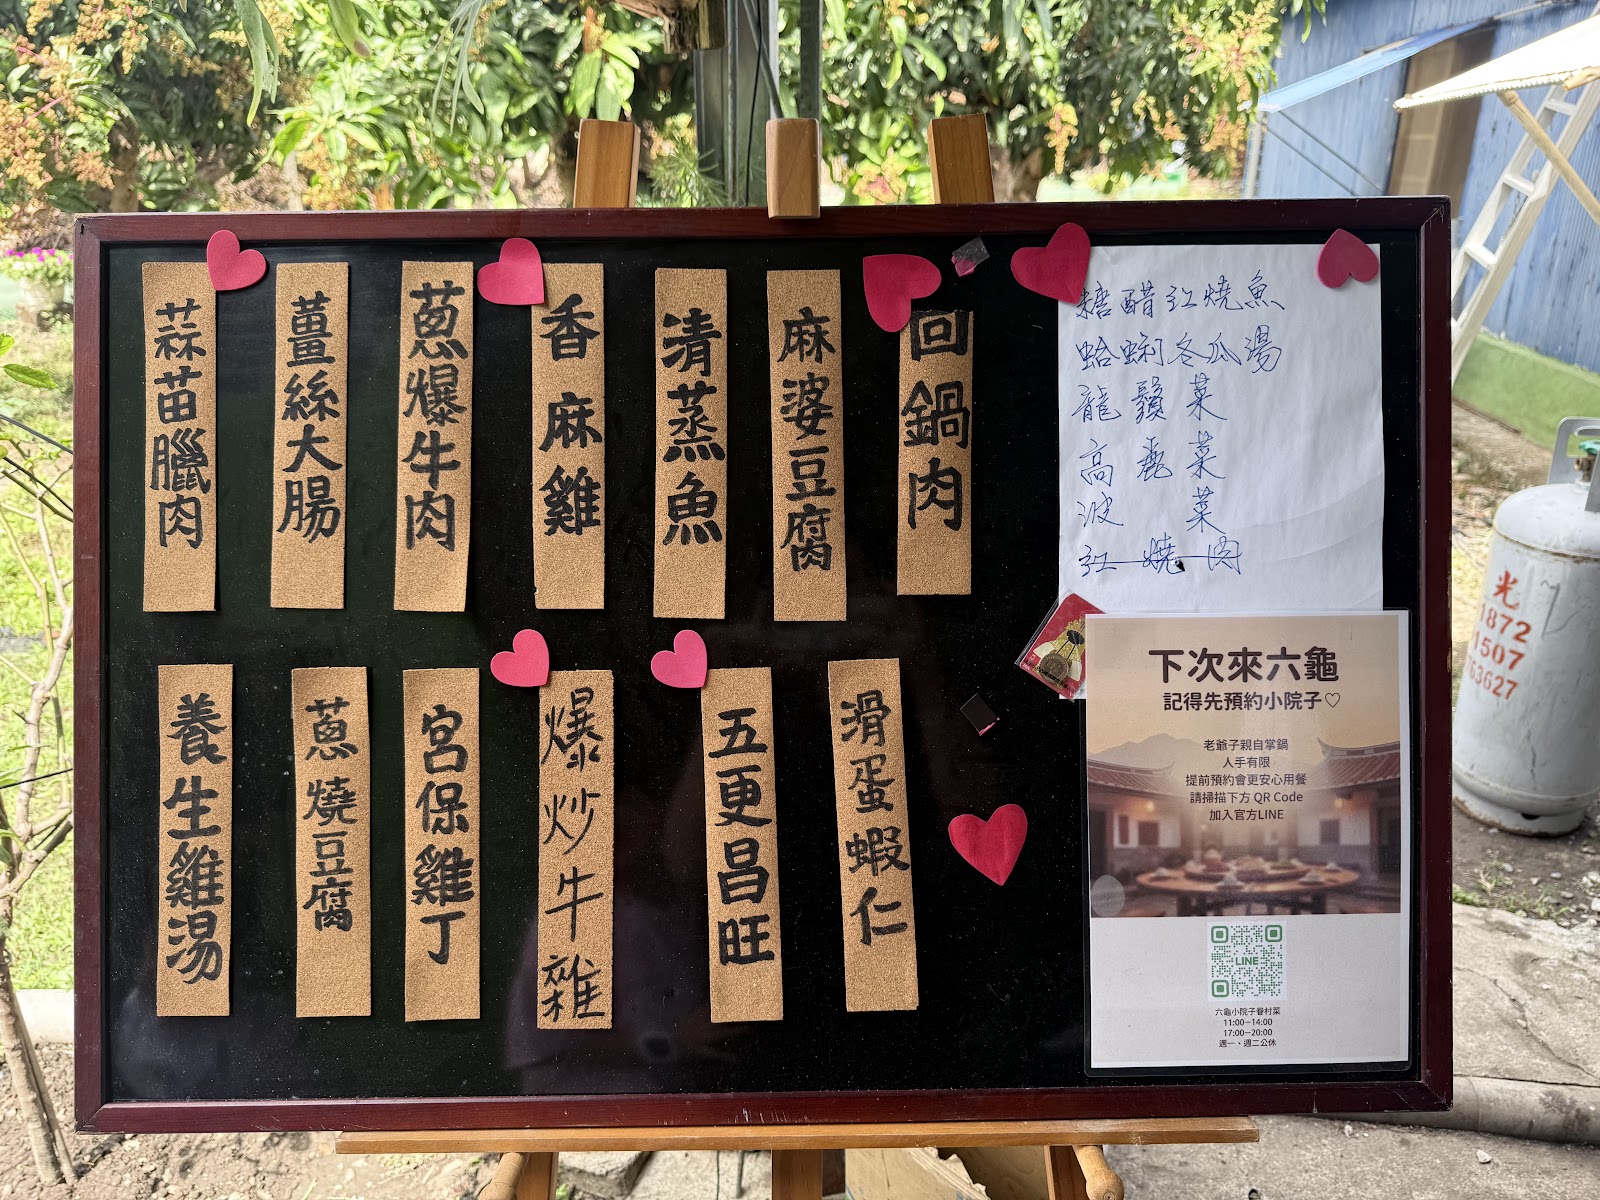 蒜苗臘肉
薑絲大腸
蔥爆牛肉
香麻雞
清蒸魚
麻婆豆腐
回鍋肉
養生雞湯
蔥燒豆腐
宮保雞丁
爆炒牛雜
五更昌旺
滑蛋蝦仁
糖醋紅燒魚
蛤蜊冬瓜湯
龍鬚菜
高麗菜
波菜
紅燒肉
下次來六龜
記得先預約小院子♡
老爺子親自掌鍋
人手有限
提前預約會更安心用餐
請掃描下方 QR Code
加入官方LINE
LINE
六龜小院子眷村菜
11:00–14:00
17:00–20:00
週一、週二公休
光
1872
4507
63627